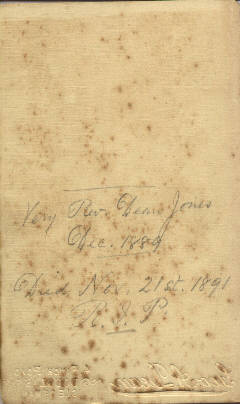 Very Rev. Dean Jones
Dec. 1889
Died Nov. 21st. 1891
R. I. P.